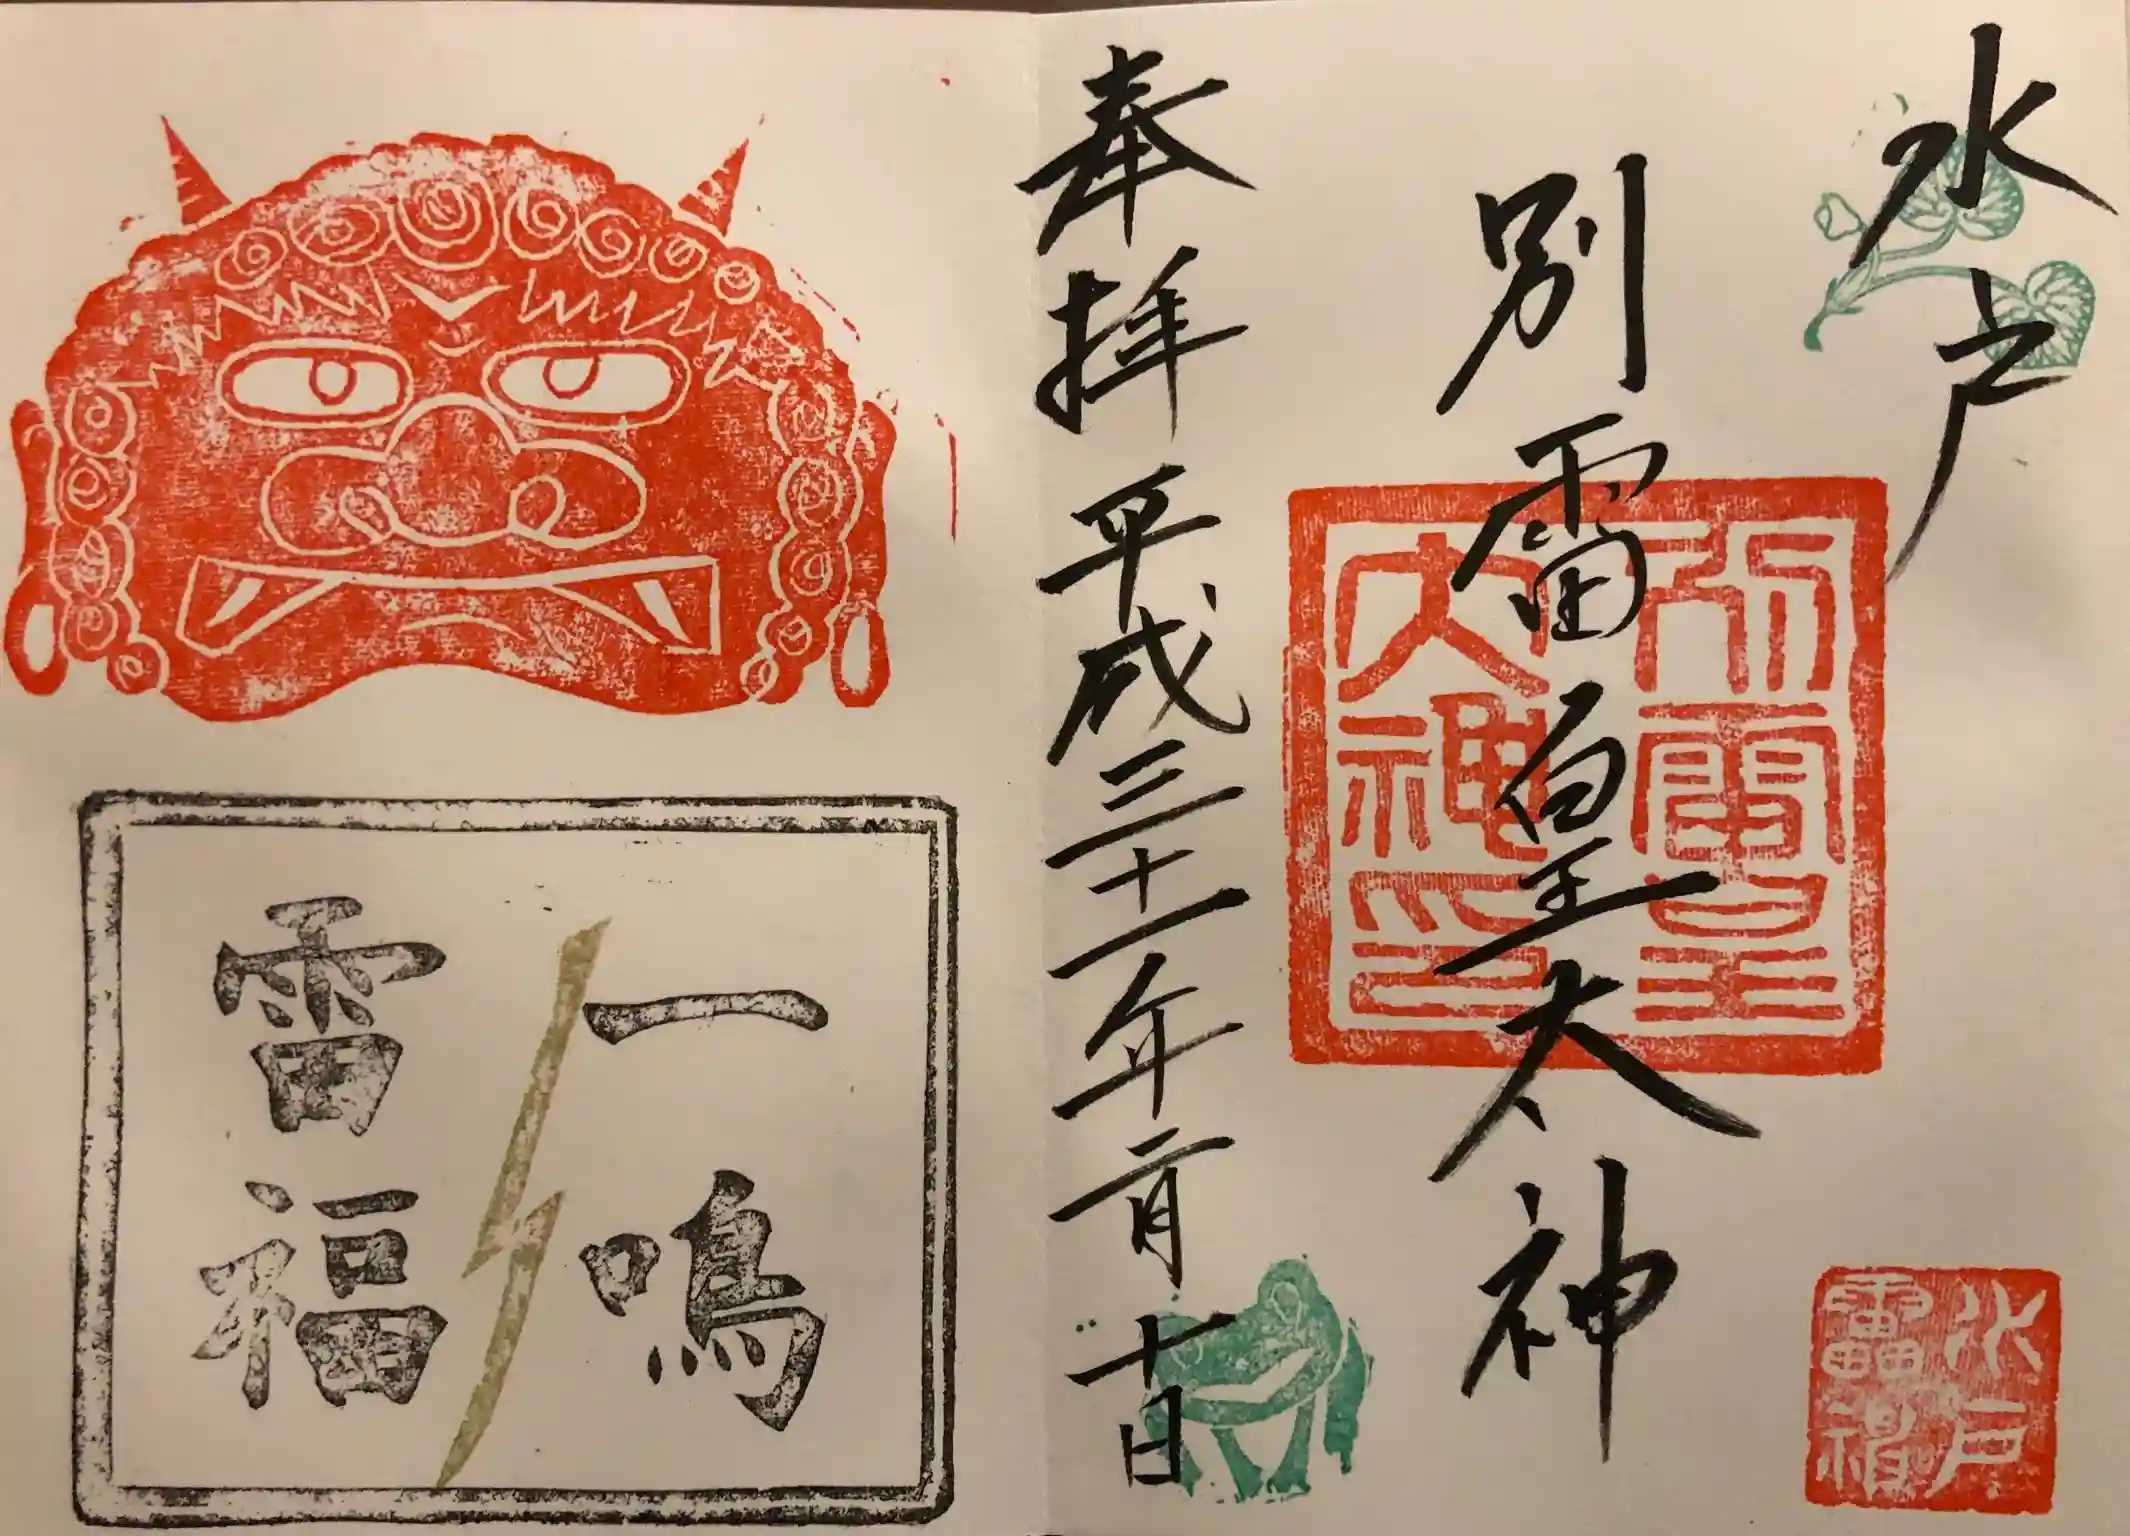 水戸
別雷皇太神
奉拝 平成三十一年二月十一日
別雷皇
大神印
水戸
雷神
一鳴
雷福